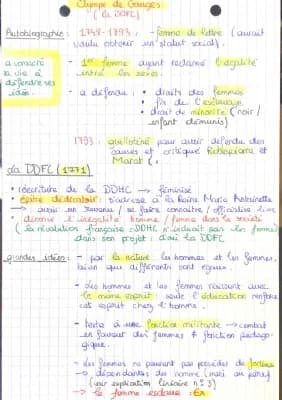 Olympe de Gouges :
( la DDFC)
Autobiographie : 1748-1793 : - femme de lettre ( aurait
voulu obtenir un statut social).
a consacré
sa vie à
défendre ses
idées.
- 1ère femme ayant réclamé l'égalité
entre les sexes.
- a défendu : • droits des femmes
• fin de l'esclavage
• droit de minorité ( noir /
enfant démunis)
1793 : guillotiné pour avoir défendu des
causes et critiqué Robespierre et
Marat
La DDFC (1771)
• réecriture de la DDHC → féminisé
• épitre dédicatoire : s'adresse à la Reine Marie Antoinette
→ avoir un revenu / se faire connaitre / officialiser
• dénonce l'inégalité homme / femme dans la société
( la révolution française = DDHC n'induit pas les femmes
dans son projet : d'où la DDFC
grandes idées : - par la nature les hommes et les femmes,
bien que différents sont égaux.
- Les hommes et les femmes naissent avec
le même esprit : seule l'éducation renforce
cet esprit chez l'homme.
- texte à une fonction militante → combat
en faveur des femmes & fonction pédago-
gique.
- les femmes ne peuvent pas posséder de
→ dépendantes des hommes (mari ou père)
(voir explication linéaire n°3)
→ la femme esclave :